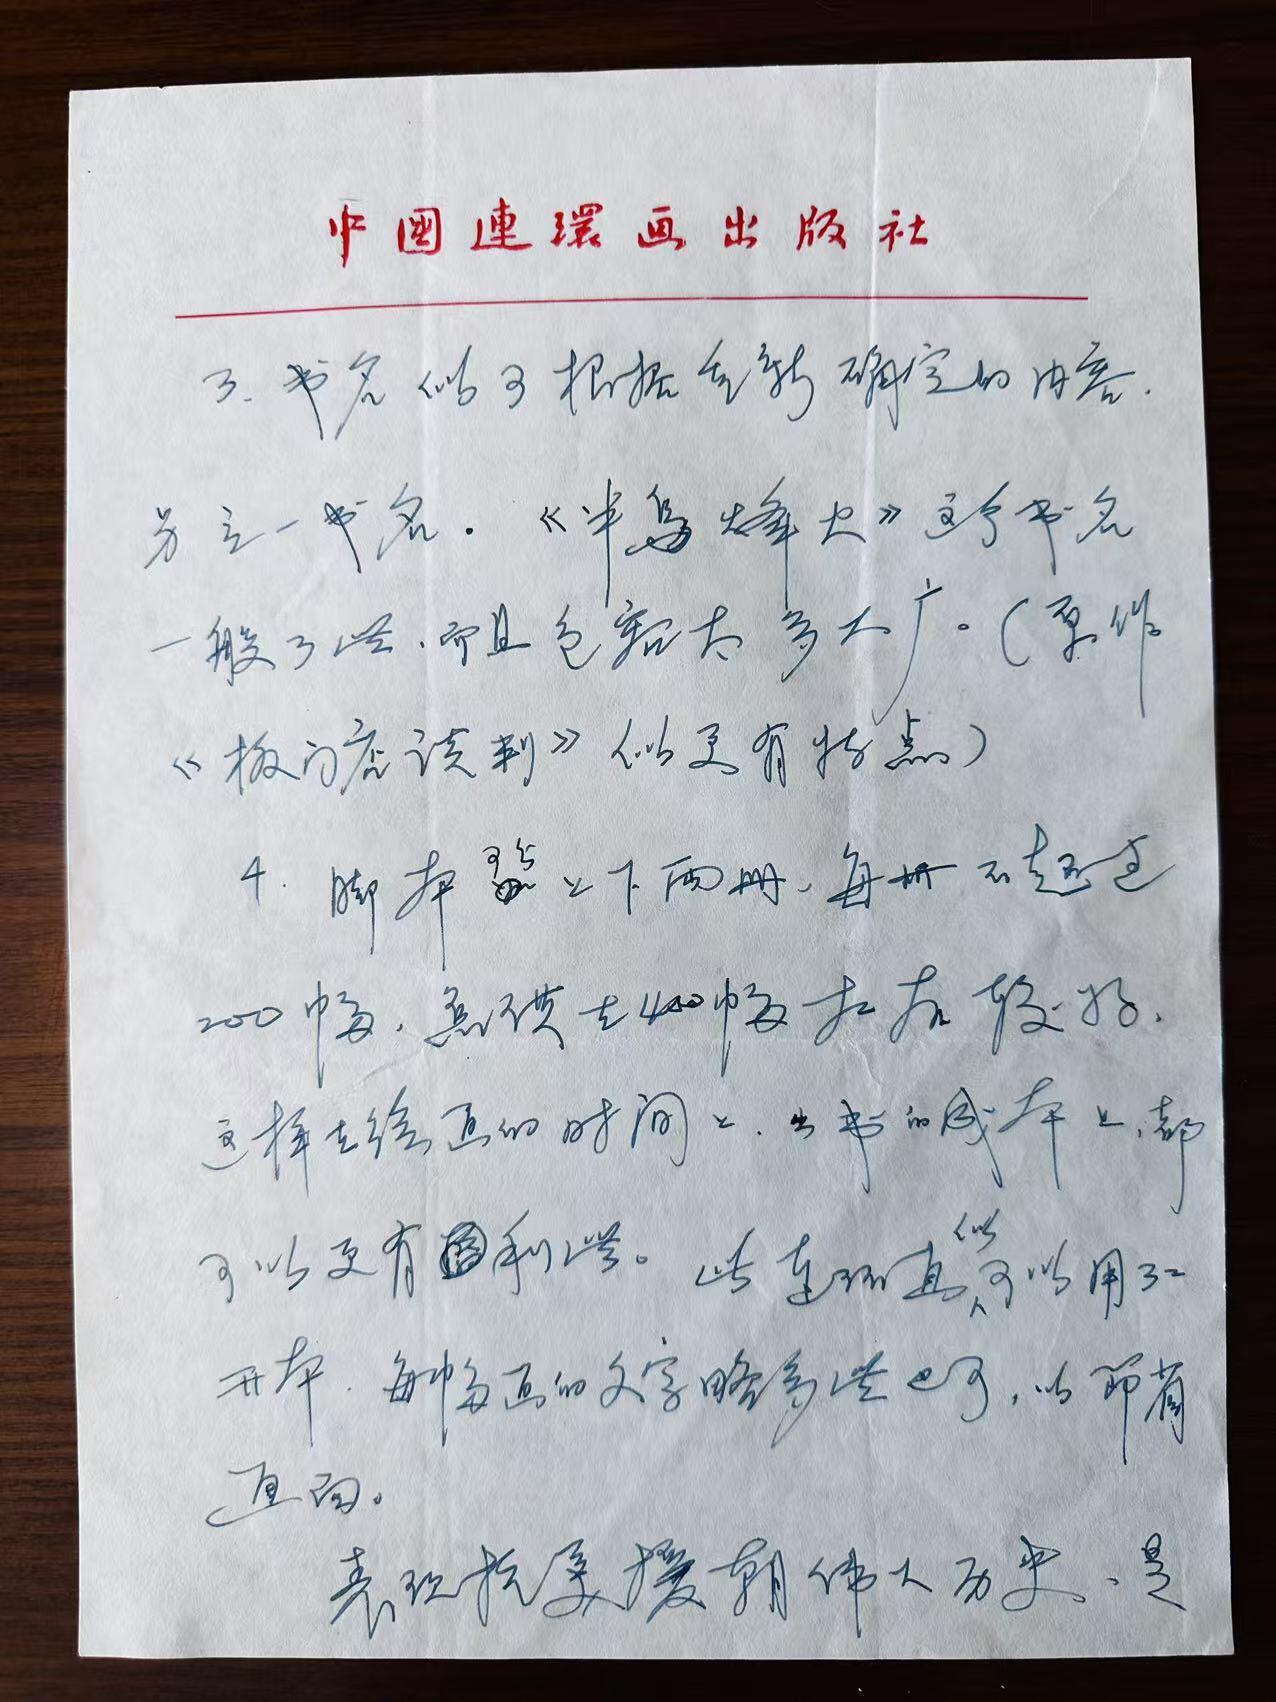 中國連環画出版社
3. 书名似可根据重新确定的内容.
另立一书名。《半岛烽火》这个书名
一般了些,而且包容太多太广。(原作
《板门店谈判》似更有特点)
4. 脚本可分上下两册,每册不超过
200幅,总共在400幅左右较好.
这样在绘画的时间上、出书的成本上,都
可以更有利些。此连环画似可以用32
开本,每幅画的文字略多些也可,以节省
画面。
表现抗美援朝伟大历史,是